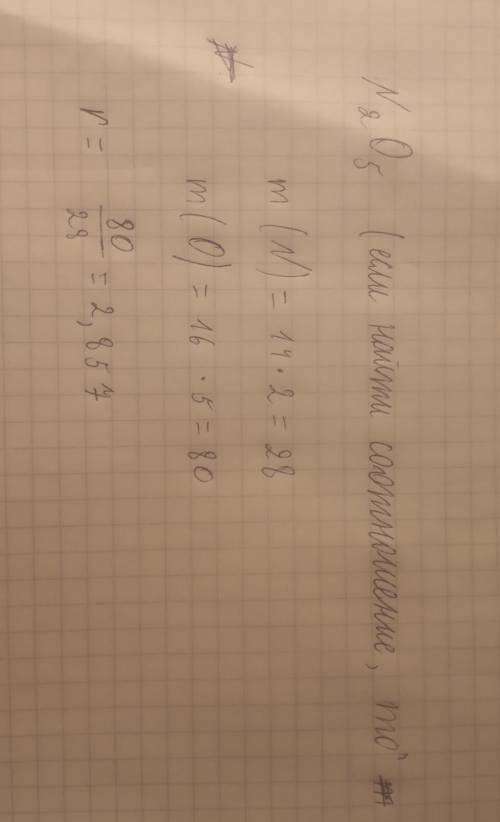 N₂O₅ (если найти соотношение, то
m (N) = 14 · 2 = 28
m (O) = 16 · 5 = 80
r = 80/28 = 2,857